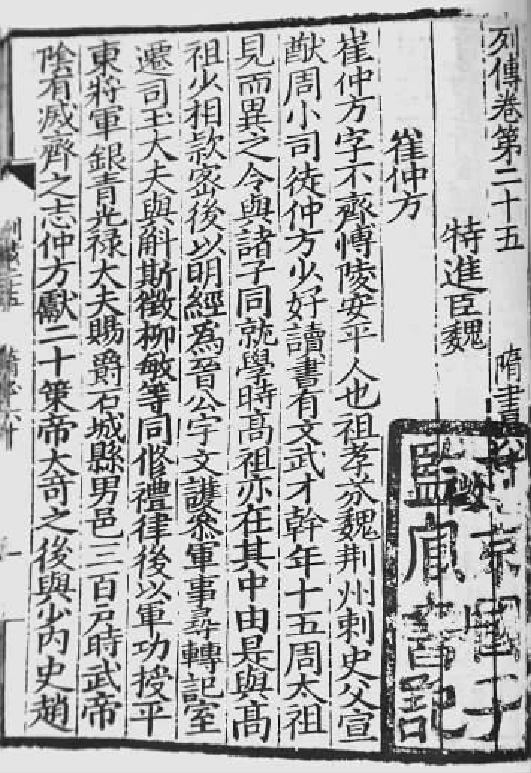 列傳卷第二十五 隋書六十
特進臣魏 徵 上
崔仲方
崔仲方字不齊愽陵安平人也祖孝芬魏荆州刺史父宣
猷周小司徒仲方少好讀書有文武才幹年十五周太祖
見而異之令與諸子同就學時髙祖亦在其中由是與髙
祖少相款宻後以明經爲晉公宇文護叅軍事尋轉記室
遷司玉大夫與斛斯徵柳敏等同脩禮律後以軍功授平
東將軍銀青光禄大夫賜爵石城縣男邑三百戸時武帝
陰有滅齊之志仲方獻二十策帝大奇之後與少内史趙